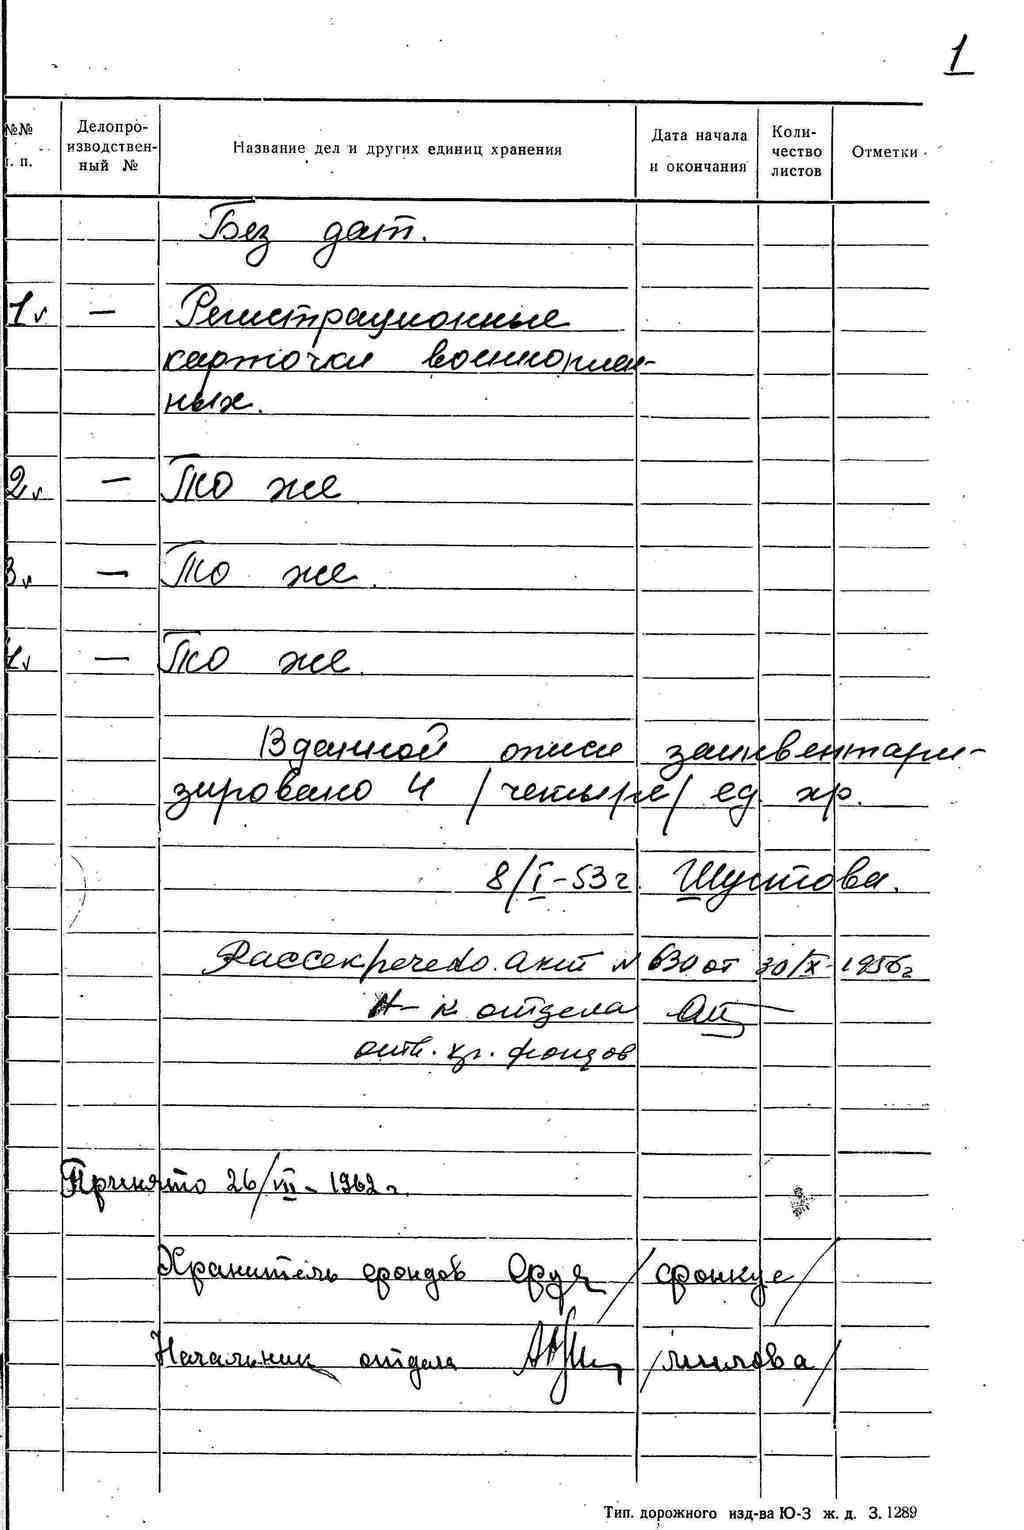 1
№№ п. п. Делопроизводственный № Название дел и других единиц хранения Дата начала и окончания Количество листов Отметки
Без дат.
1 – Регистрационные
карточки военноплен-
ных.
2 – То же
3 – То же.
4 – То же.
В данной описи заинвентари-
зировано 4 /четыре/ ед. хр.
8/I-53 г. Шустова.
Рассекречено. акт № 630 от 30/X-1956 г
Н-к отдела
фондов
Принято 26/VII-1962 г.
Хранитель фондов /Фонкус/
Начальник отдела
Тип. дорожного изд-ва Ю-З ж. д. З. 1289